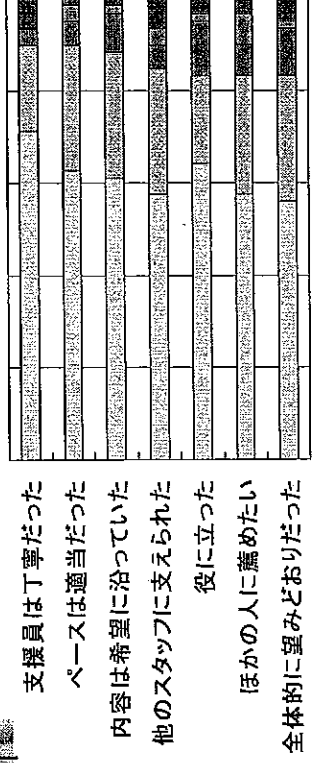 支援員は丁寧だった
ペースは適当だった
内容は希望に沿っていた
他のスタッフに支えられた
役に立った
ほかの人に薦めたい
全体的に望みどおりだった